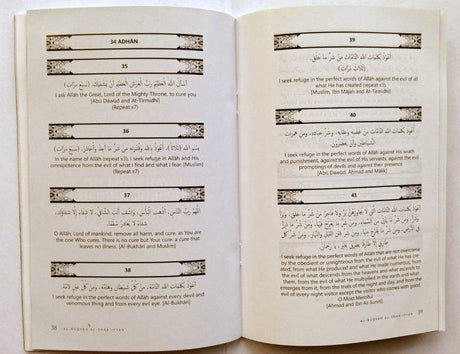 34 ADHĀN
35
أَسْأَلُ اللهَ الْعَظِيمَ رَبَّ الْعَرْشِ الْعَظِيمِ أَنْ يَشْفِيَكَ. (سَبْعَ مَرَّاتٍ)
I ask Allāh the Great, Lord of the Mighty Throne, to cure you
[Abū Dāwūd and At-Tirmidhī]
(Repeat x7)
36
In the name of Allāh (repeat x3), I seek refuge in Allāh and His
omnipotence from the evil of what I find and what I fear. [Muslim]
(Repeat x7)
37
اللَّهُمَّ رَبَّ النَّاسِ، أَذْهِبِ الْبَأْسَ، وَاشْفِ أَنْتَ الشَّافِي، لَا شِفَاءَ إِلَّا شِفَاؤُكَ،
شِفَاءً لَا يُغَادِرُ سَقَمًا.
O Allāh, Lord of mankind, remove all harm, and cure, as You are
the one Who cures. There is no cure but Your cure: a cure that
leaves no illness. [Al-Bukhārī and Muslim]
38
أَعُوذُ بِكَلِمَاتِ اللهِ التَّامَّةِ، مِنْ كُلِّ شَيْطَانٍ وَهَامَّةٍ، وَمِنْ كُلِّ عَيْنٍ لَامَّةٍ.
I seek refuge in the perfect words of Allāh against every devil and
venomous thing and from every evil eye. [Al-Bukhārī]
38
AL-RUQYAH AL-SHAR'IYYAH
39
أَعُوذُ بِكَلِمَاتِ اللهِ التَّامَّاتِ مِنْ شَرِّ مَا خَلَقَ.
(ثَلَاثَ مَرَّاتٍ)
I seek refuge in the perfect words of Allāh against the evil of all
what He has created (repeat x3).
[Muslim, Ibn Mājah and At-Tirmidhī]
40
أَعُوذُ بِكَلِمَاتِ اللهِ التَّامَّاتِ مِنْ غَضَبِهِ وَعِقَابِهِ، وَشَرِّ عِبَادِهِ، وَمِنْ
هَمَزَاتِ الشَّيَاطِينِ، وَأَنْ يَحْضُرُونِ.
I seek refuge in the perfect words of Allāh against His wrath
and punishment, against the evil of His servants, against the evil
promptings of devils and their presence
[Abū Dāwūd, Aḥmad and Mālik]
41
I seek refuge in the perfect words of Allāh that are not overcome
by the obedient or unrighteous from the evil of what He created,
from what He produced and what He made numerous, from
the evil of what descends from the heaven and what ascends
to them, from the evil of what multiplies in the earth and what
emerges from it, from the trials of the day and night and from the
evil of every night visitor except the visitor who comes with good
O Most Merciful
[Aḥmad and Ibn As-Sunnī]
AL-RUQYAH AL-SHAR'IYYAH
39